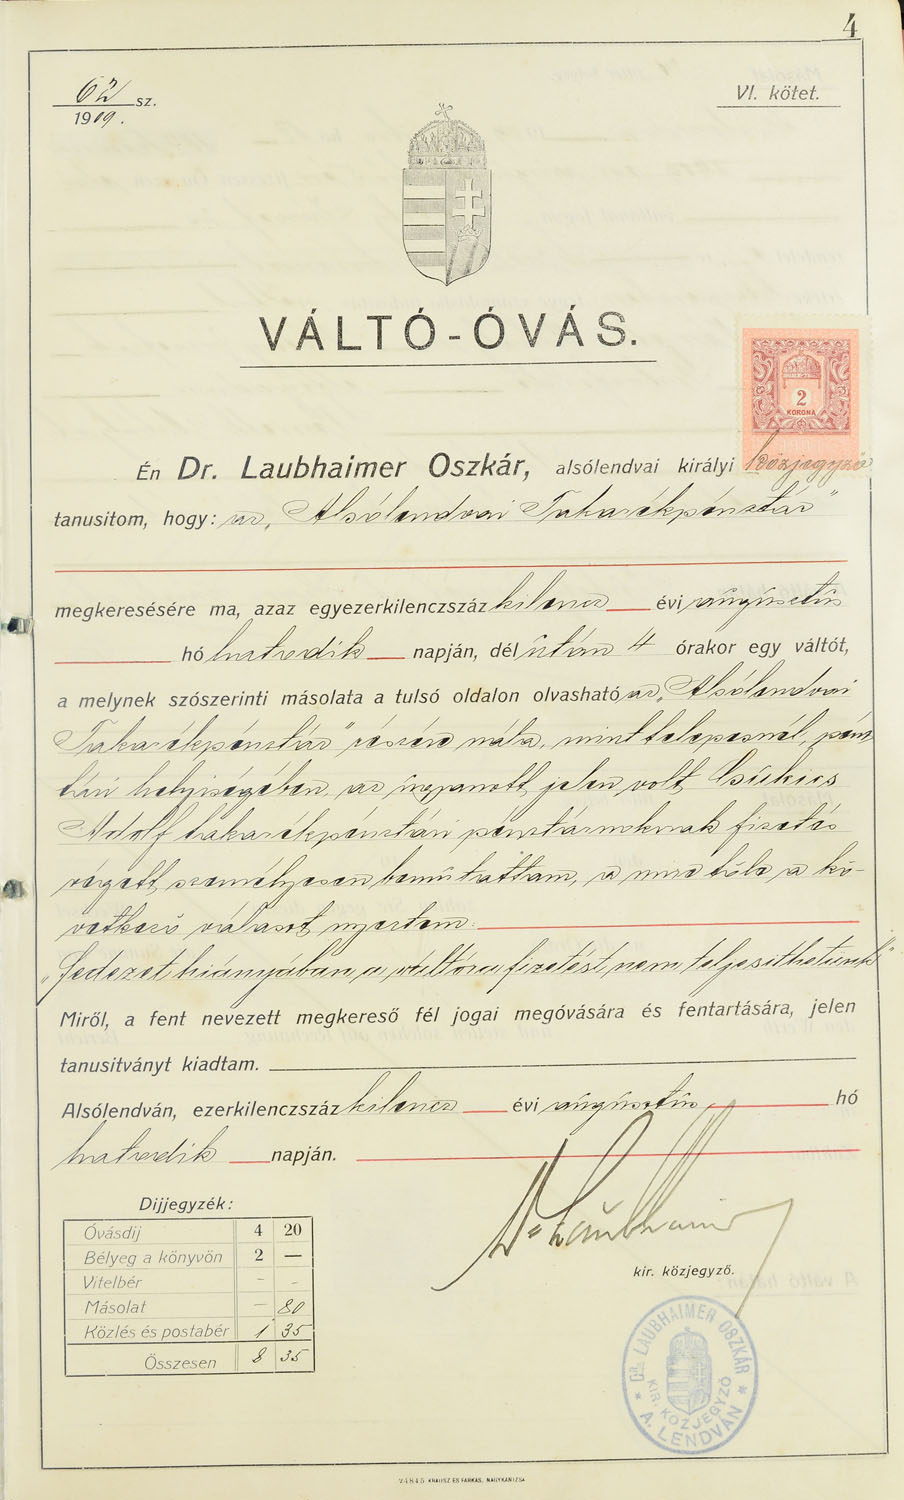 4
62 sz.
1909.
VI. kötet.
VÁLTÓ-ÓVÁS.
2
KORONA
Én Dr. Laubhaimer Oszkár, alsólendvai királyi közjegyző
tanusitom, hogy: az „Alsólendvai Takarékpénztár"
megkeresésére ma, azaz egyezerkilenczszáz kilencz évi augusztus
hó hatodik napján, dél után 4 órakor egy váltót,
a melynek szószerinti másolata a tulsó oldalon olvasható az „Alsólendvai
Takarékpénztár" részére nála, mint telepesnél, pénz-
tári helyiségében, az ugyanott jelen volt Csukics
Adolf takarékpénztári pénztárnoknak fizetés
végett személyesen bemutattam, a mire tőle a kö-
vetkező választ nyertem:
„fedezet hiányában a váltóra fizetést nem teljesithetünk"
Miről, a fent nevezett megkereső fél jogai megóvására és fentartására, jelen
tanusitványt kiadtam.
Alsólendván, ezerkilenczszáz kilencz évi augusztus hó
hatodik napján.
Dr Laubhaimer
kir. közjegyző.
Dijjegyzék:
Óvásdij 4 20
Bélyeg a könyvön 2 —
Vitelbér - -
Másolat — 80
Közlés és postabér 1 35
Összesen 8 35
DR. LAUBHAIMER OSZKÁR
KIR. KÖZJEGYZŐ
* A. LENDVÁN *
24845 KRAUSZ ÉS FARKAS, NAGYKANIZSA